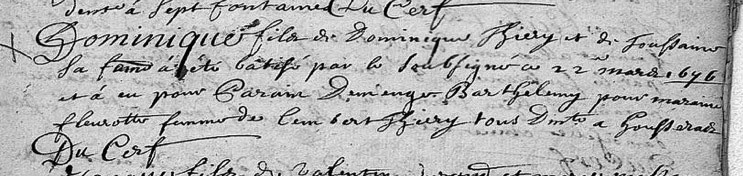 dmte à Sept fontaines Du Cerf
Dominique fils de Dominique Thiery et de Toussaine
sa fame a été bâtisé par le soubsigné ce 22e mars 1676
et a eu pour Parain Demenge Barthelemy pour maraine
fleurotte femme de Lembert Thiery tous dmts a Housseras
Du Cerf
fils de Valentin